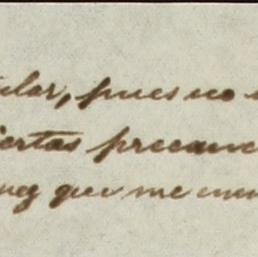 ular, pues no
iertas precauc
vez que me